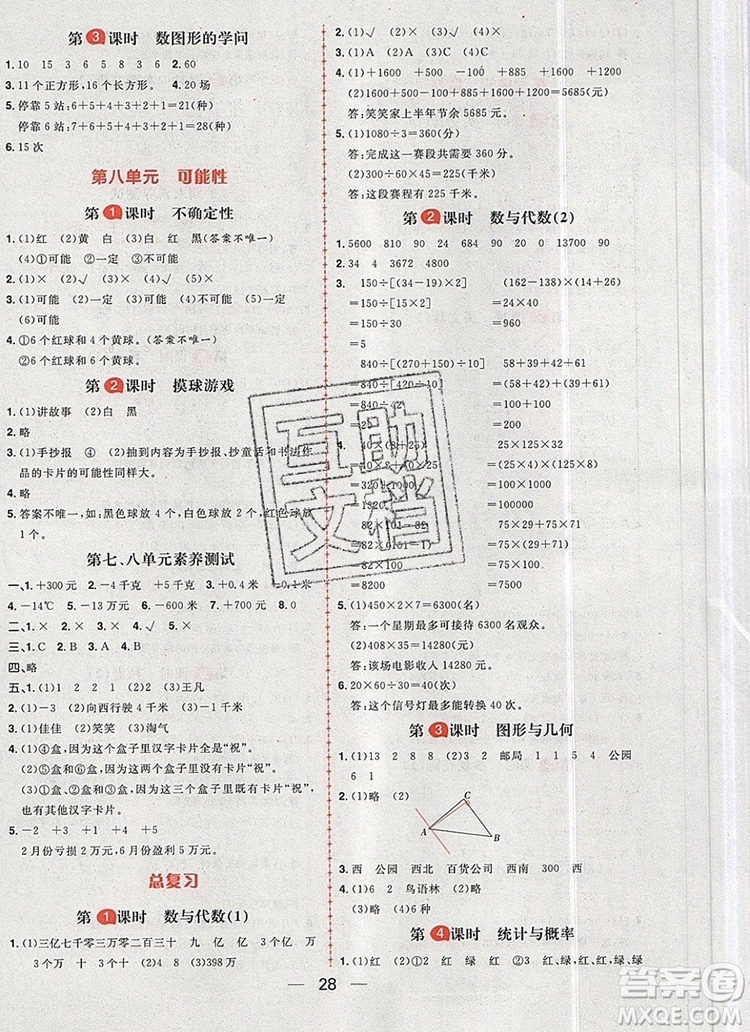 第3课时 数图形的学问
1. 10 15 3 6 3 5 8 3 6 2. 60
3. 11个正方形,16个长方形。 4. 20场
5. 停靠6站:6+5+4+3+2+1=21(种)
停靠7站:7+6+5+4+3+2+1=28(种)
6. 15次
第八单元 可能性
第1课时 不确定性
1. (1)红 (2)黄 白 (3)白 红 黑(答案不唯一)
(4)①可能 ②一定 ③不可能
2. (1)× (2)√ (3)√ (4)× (5)×
3. (1)可能 (2)一定 (3)可能 (4)不可能 (5)一定
(6)不可能
4. ①6个红球和4个黄球。(答案不唯一)
②6个红球和6个黄球。
第2课时 摸球游戏
1. (1)讲故事 (2)白 黑
2. 略
3. (1)手抄报 ④ (2)抽到内容为手抄报、抄童话与书法作
品的卡片的可能性同样大。
4. 略
5. 答案不唯一,如:黑色球放4个,白色球放6个,红色球放
1个。
第七、八单元素养测试
一、1. +300元 2. -4千克 +5千克 3. +0.4米 -0.1米
4. -14℃ 5. -5万元 6. +2万元 7. +700元 8. -2
二、1. × 2. × 3. × 4. √ 5. × 三、1. C 2. B 3. A
四、略
五、1. (1)1 2 2 1 (2)王凡
2. (1)-2千米 (2)向西行驶4千米 (3)9千米
3. (1)佳佳 (2)笑笑 (3)淘气
4. (1)④盒,因为这个盒子里汉字卡片全是“祝”。
(2)⑤盒,因为这个盒子里没有汉字卡片“祝”。
(3)②盒,因为这个盒子里汉字卡片“祝”的数量最多,
其他汉字卡片的数量较少。
5. -2 +2 -1 +3 +4 +5
2月份亏损2万元,6月份盈利5万元。
总复习
第1课时 数与代数(1)
1. (1)三亿七千零三万零二百三十 九 亿 亿 3个亿 万
3个万 十 3个十 (2)4 (3)398万
2. (1)√ (2)× (3)√ (4)× (5)√
3. (1)A (2)A (3)C (4)C
4. (1)+1600 +1500 -100 +885 +1800
(2)1600+1500-100+885+1800=5685(元)
答:笑笑家上半年节余5685元。
5. (1)1080÷3=360(分)
答:完成这一赛段共需要360分。
(2)360÷8×5=225(千米)
答:这段赛程有225千米。
第2课时 数与代数(2)
1. 5600 810 90 24 68 90 20 0 13700 90
2. 34 4 3672 4800
3. 150÷[(34-19)×2] (162-138)×(14+26)
=150÷[15×2] =24×40
=150÷30 =960
=5
840÷[(420+10)÷10] 58+39+42+61
=(58+42)+(39+61)
=100+100
=200
4. 25×125×32
=(25×4)×(125×8)
=100×1000
=100000
82×101-82 25×29+25
=82×(101-1) =25×(29+1)
=82×100 =25×30
=8200 =750
5. (1)450×2×7=6300(名)
答:一个星期最多可接待6300名观众。
(2)408×35=14280(元)
答:该场电影收入14280元。
6. 20×60÷30=40(次)
答:这个信号灯最多能转换40次。
第3课时 图形与几何
1. (1)13 2 8 8 (2)3 2 邮局 1 5 4 4 公园
6 1
2. (1)略 (2)
A B C
3. 西 公园 西北 百货公司 西南 300 西
4. (1)6 2 鸟语林 (2)略
(3)略 (4)6种
第4课时 统计与概率
1. (1)红 (2)2 红 绿 红 (3)红,绿 红,红 红,绿
28
互助文档
答案圈
MXQE.COM